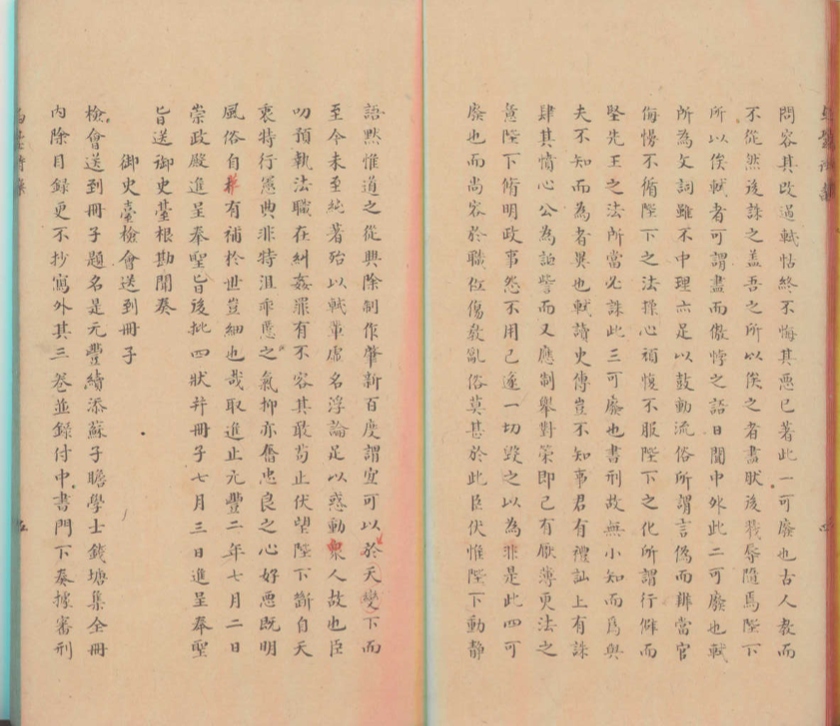 問容其改過軾怙終不悔其惡已著此一可廢也古人教而
不從然後誅之盖吾之所以俟之者盡狀後戮辱隨焉陛下
所以俟軾者可謂盡而傲悖之語日聞中外此二可廢也軾
所為文詞雖不中理亦足以鼓動流俗所謂言偽而辯當官
侮慢不循陛下之法操心頑愎不服陛下之化所謂行僻而
堅先王之法所當必誅此三可廢也書刑故無小知而為與
夫不知而為者異也軾讀史傳豈不知事君有禮訕上有誅
肆其憤心公為詆訾而又應制舉對策即已有厭薄更法之
意陛下脩明政事怨不用己遂一切毀之以為非是此四可
廢也而尚容於職位傷教亂俗莫甚於此臣伏惟陛下動靜
語默惟道之從興除制作肇新百度謂宜可以於天變下而
至今未至純著殆以軾輩虛名浮論足以惑動衆人故也臣
叨預執法職在糾姦罪有不容其敢苟止伏望陛下斷自天
衷特行憲典非特沮乖慝之氣抑亦奮忠良之心好惡既明
風俗自革有補於世豈細也哉取進止元豐二年七月二日
崇政殿進呈奉聖旨後批四狀并冊子七月三日進呈奉聖
旨送御史臺根勘聞奏
御史臺檢會送到冊子
檢會送到冊子題名是元豐續添蘇子瞻學士錢塘集全冊
內除目録更不抄寫外其三卷並録付中書門下奏據審刑